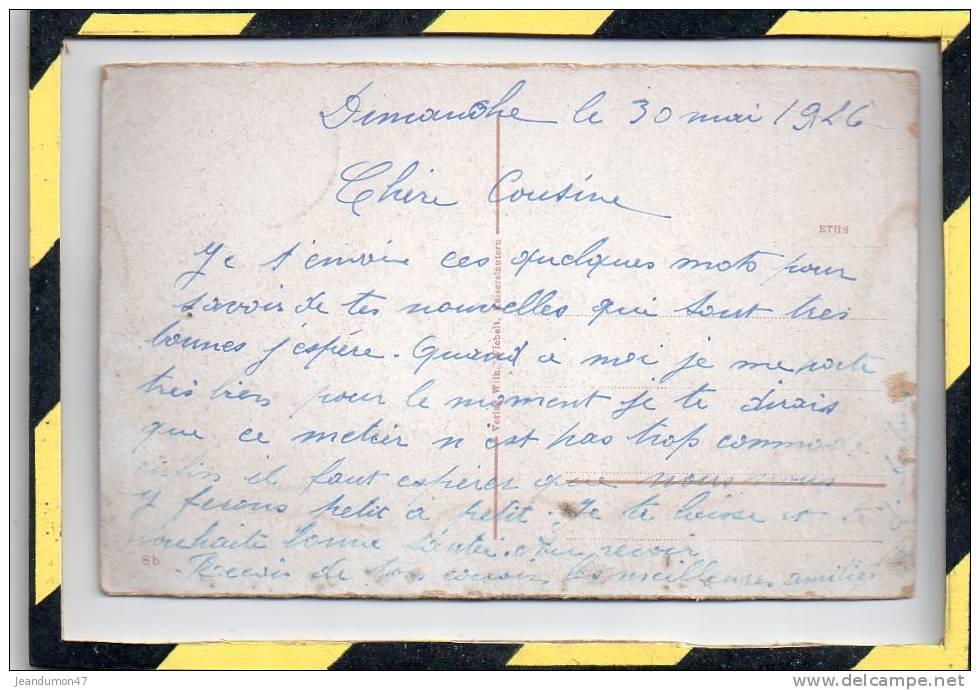 Dimanche le 30 mai 1926
Chère Cousine
ETHS
Je t'envoie ces quelques mots pour
savoir de tes nouvelles qui sont très
bonnes j'espère. Quand à moi je me porte
très bien pour le moment je te dirais
que ce metier n'est pas trop commode
enfin il faut espérer que nous nous
y ferons petit à petit. Je te laisse et te
souhaite bonne santé. Au revoir
Reçois de ton cousin les meilleures amitiés
8b
Verlag Wilh. Kaiserslautern
jeandumon47
www.delcampe.net